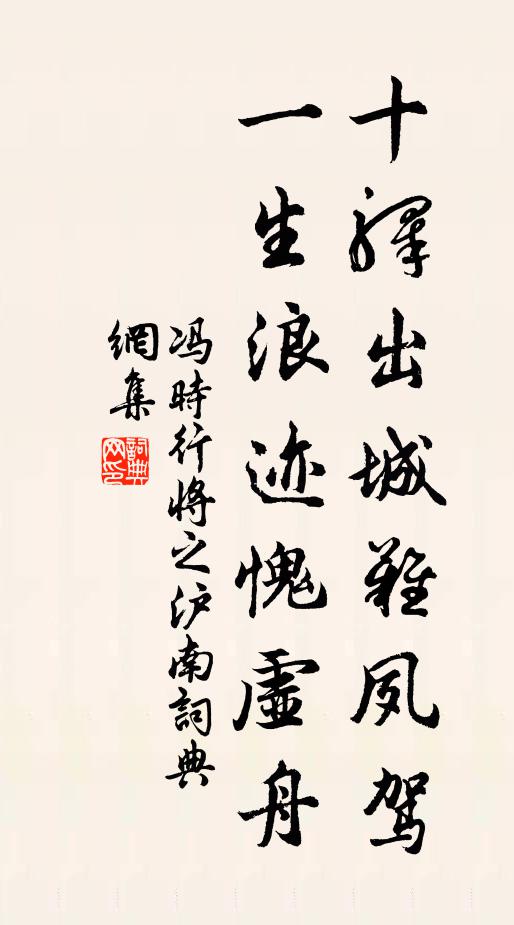 十驛出城難夙駕
一生浪迹愧虛舟
馮時行將之沪南詞典
網集
詞典网印